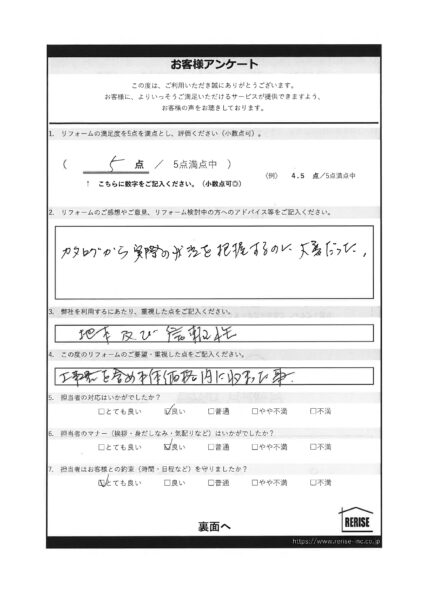 お客様アンケート
この度は、ご利用いただき誠にありがとうございます。
お客様に、よりいっそうご満足いただけるサービスが提供できますよう、
お客様の声をお聴きしております。
1. リフォームの満足度を5点を満点とし、評価ください（小数点可）。
（ 5 点 ／ 5点満点中 ）
↑ こちらに数字をご記入ください。（小数点可◎）
（例） 4.5 点／5点満点中
2. リフォームのご感想やご意見、リフォーム検討中の方へのアドバイス等をご記入ください。
カタログから実際の状況を把握するのに大変だった。
3. 弊社を利用するにあたり、重視した点をご記入ください。
地本及び信頼性
4. この度のリフォームのご要望・重視した点をご記入ください。
を含め本体価格内に収めた事
5. 担当者の対応はいかがでしたか？
□とても良い ☑良い □普通 □やや不満 □不満
6. 担当者のマナー（挨拶・身だしなみ・気配りなど）はいかがでしたか？
□とても良い ☑良い □普通 □やや不満 □不満
7. 担当者はお客様との約束（時間・日程など）を守りましたか？
☑とても良い □良い □普通 □やや不満 □不満
裏面へ
RERISE
https://www.rerise-inc.co.jp